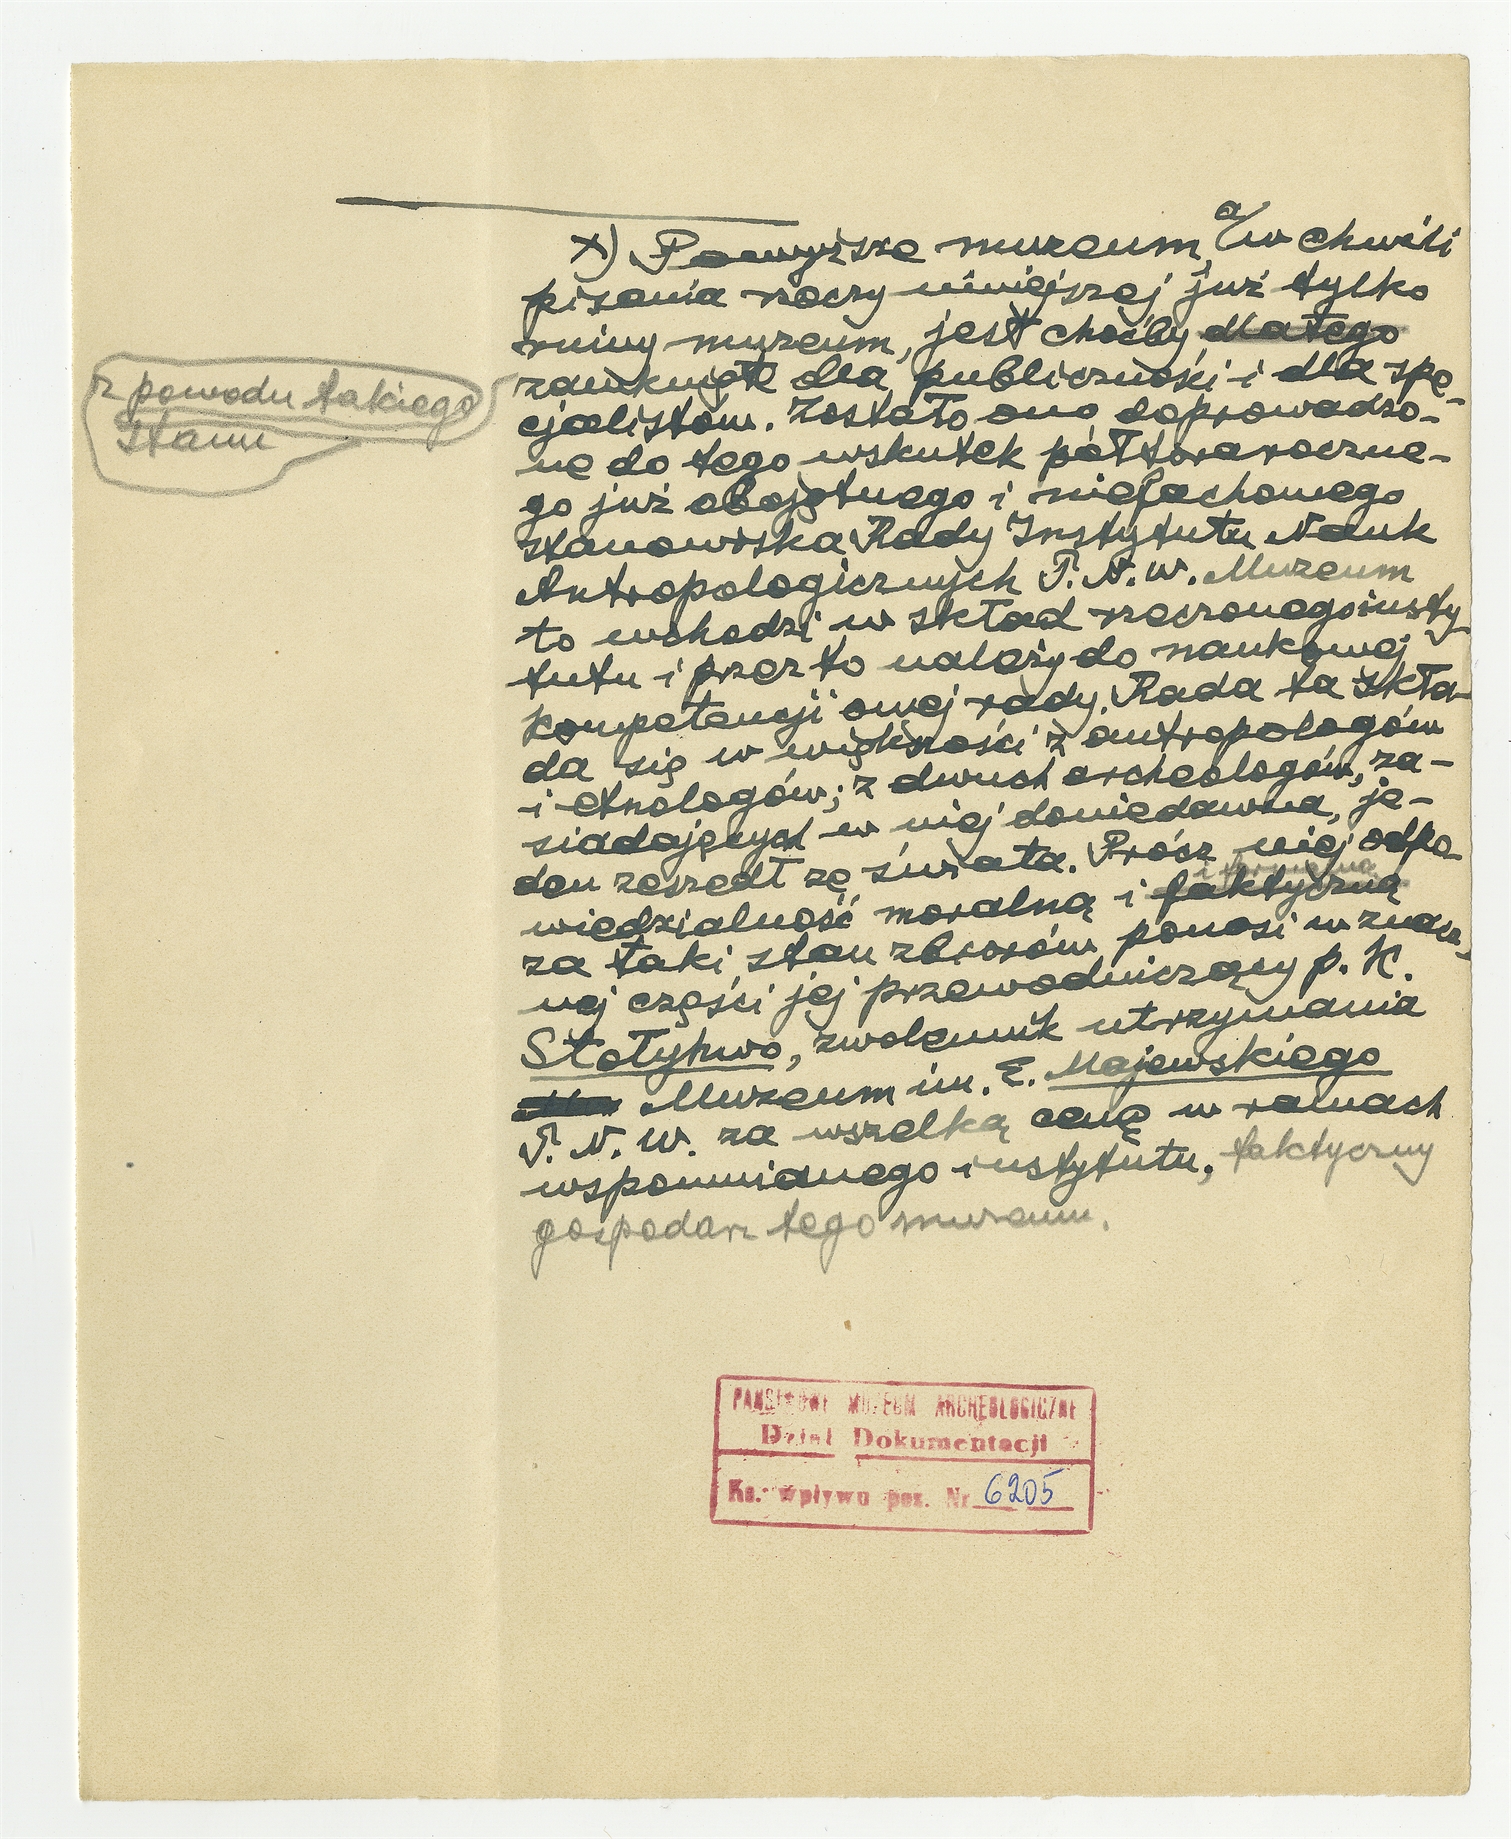 x) Powyższe muzeum, a/w chwili
pisania rzeczy niniejszej już tylko
ruiny muzeum, jest choćby dlatego
z powodu takiego
stanu
zamknięte dla publiczności i dla spe-
cjalistów. Zostało ono doprowadzo-
ne do tego wskutek półtoraroczne-
go już obojętnego i niefachowego
stanowiska Rady Instytutu Nauk
Antropologicznych T. N. W. Muzeum
to wchodzi w skład rzeczonego insty-
tutu i przez to należy do naukowej
kompetencji owej rady. Rada ta skła-
da się w większości z antropologów
i etnologów; z dwuch archeologów, za-
siadających w niej doniedawna, je-
den zeszedł ze świata. Prócz niej odpo-
i formalną
wiedzialność moralną i faktyczną
za taki stan zbiorów ponosi w znacz-
nej części jej przewodniczący p. K.
Stołyhwo, zwolennik utrzymania
Muzeum im. E. Majewskiego
T. N. W. za wszelką cenę w ramach
wspomnianego instytutu, faktyczny
gospodarz tego muzeum.
PAŃSTWOWE MUZEUM ARCHEOLOGICZNE
Dział Dokumentacji
Ks. wpływu poz. Nr 6205